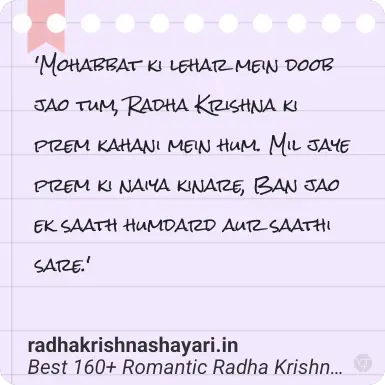 ‘Mohabbat ki lehar mein doob
jao tum, Radha Krishna ki
prem kahani mein hum. Mil jaye
prem ki naiya kinare, Ban jao
ek saath humdard aur saathi
sare.‘
radhakrishnashayari.in
Best 160+ Romantic Radha Krishn...